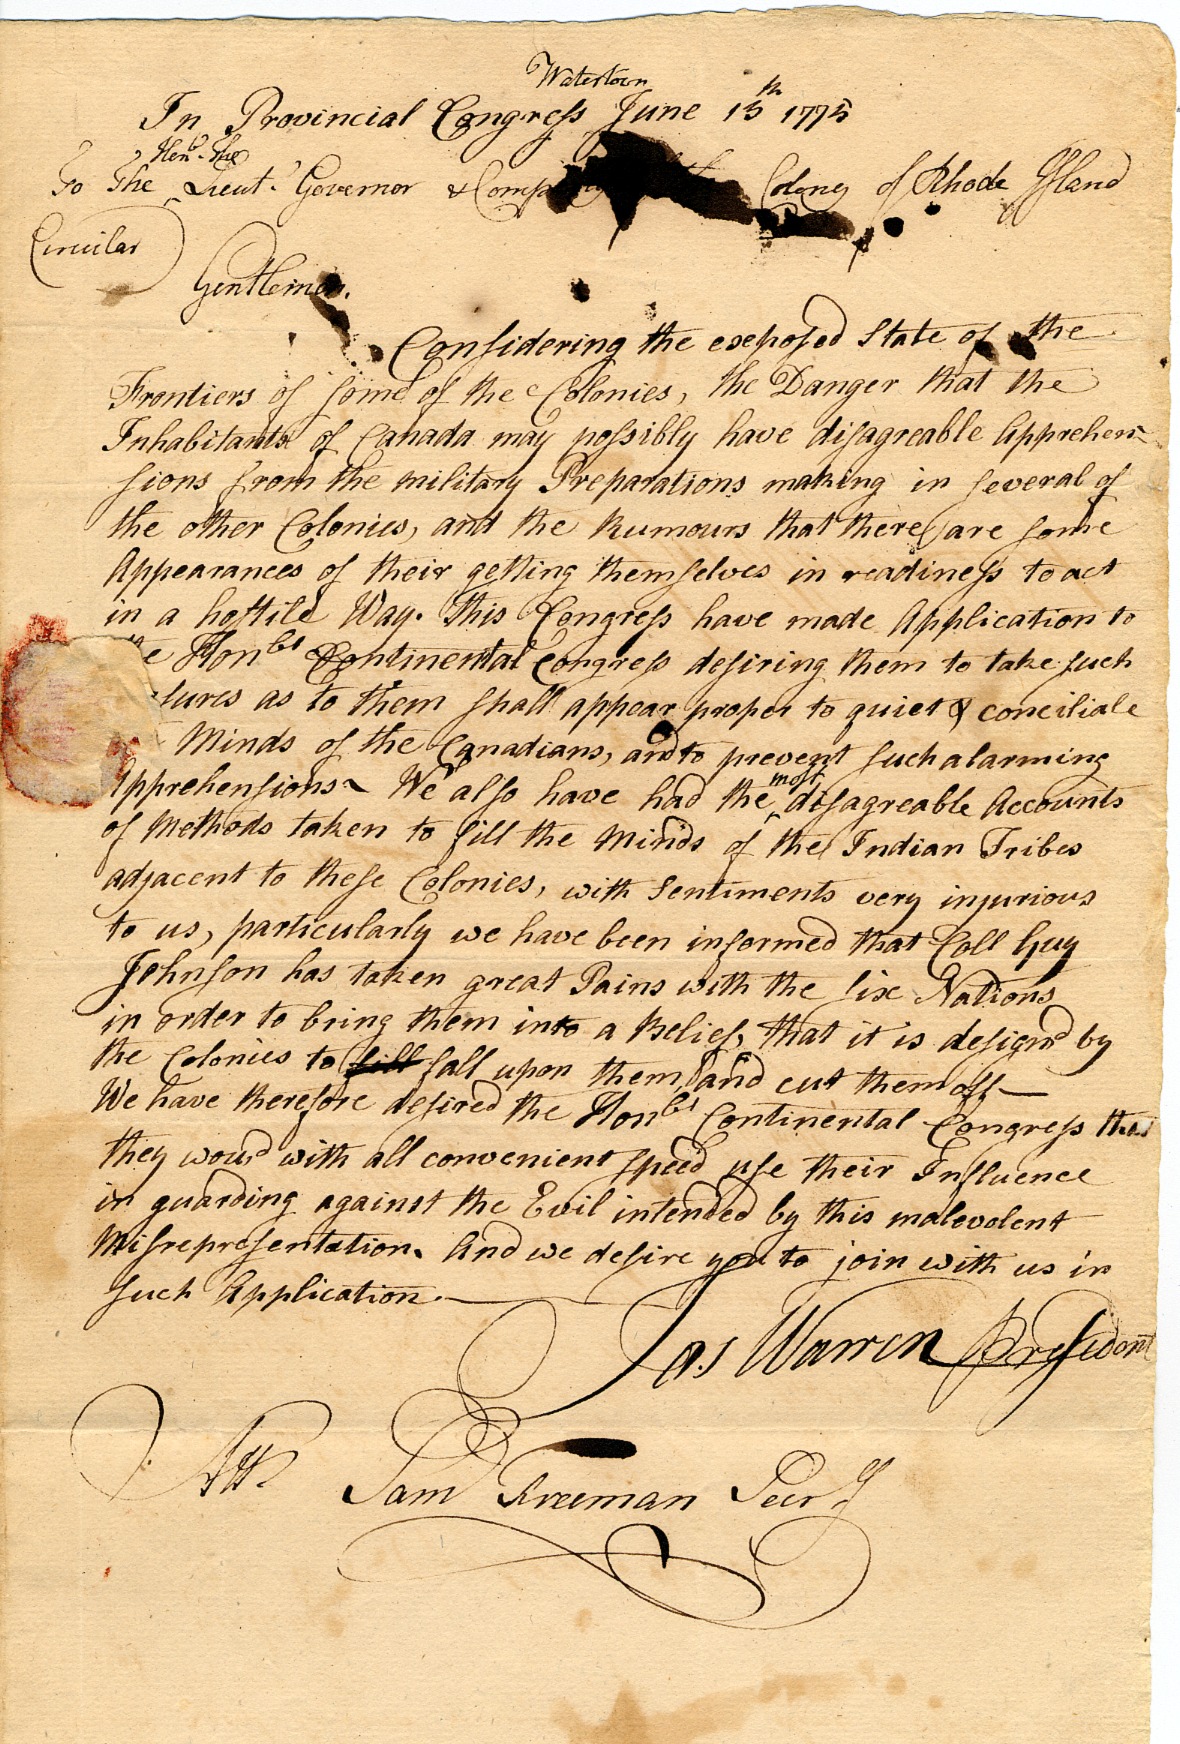 Watertown
In Provincial Congress June 13th 1775
Honb. The
To The Lieut. Governor & Company the Colony of Rhode Island
Circular
Gentlemen.
Considering the exposed State of the
Frontiers of some of the Colonies, the Danger that the
Inhabitants of Canada may possibly have disagreable Apprehen-
sions from the military Preparations making in several of
the other Colonies, and the Rumours that there are some
Appearances of their getting themselves in readiness to act
in a hostile Way. This Congress have made Application to
the Honble Continental Congress desiring them to take such
sures as to them shall appear proper to quiet & conciliate
Minds of the Canadians, and to prevent such alarming
Apprehensions- We also have had the most disagreable Accounts
of Methods taken to fill the Minds of the Indian Tribes
adjacent to these Colonies, with Sentiments very injurious
to us, particularly we have been informed that Coll Guy
Johnson has taken great Pains with the Six Nations
in order to bring them into a Belief, that it is design'd by
the Colonies to fill fall upon them and cut them off-
We have therefore desired the Honble Continental Congress that
they would with all convenient speed use their Influence
in guarding against the Evil intended by this malevolent
Misrepresentation. And we desire you to join with us in
such Application.
Jas Warren President
Attt Saml Freeman Secry